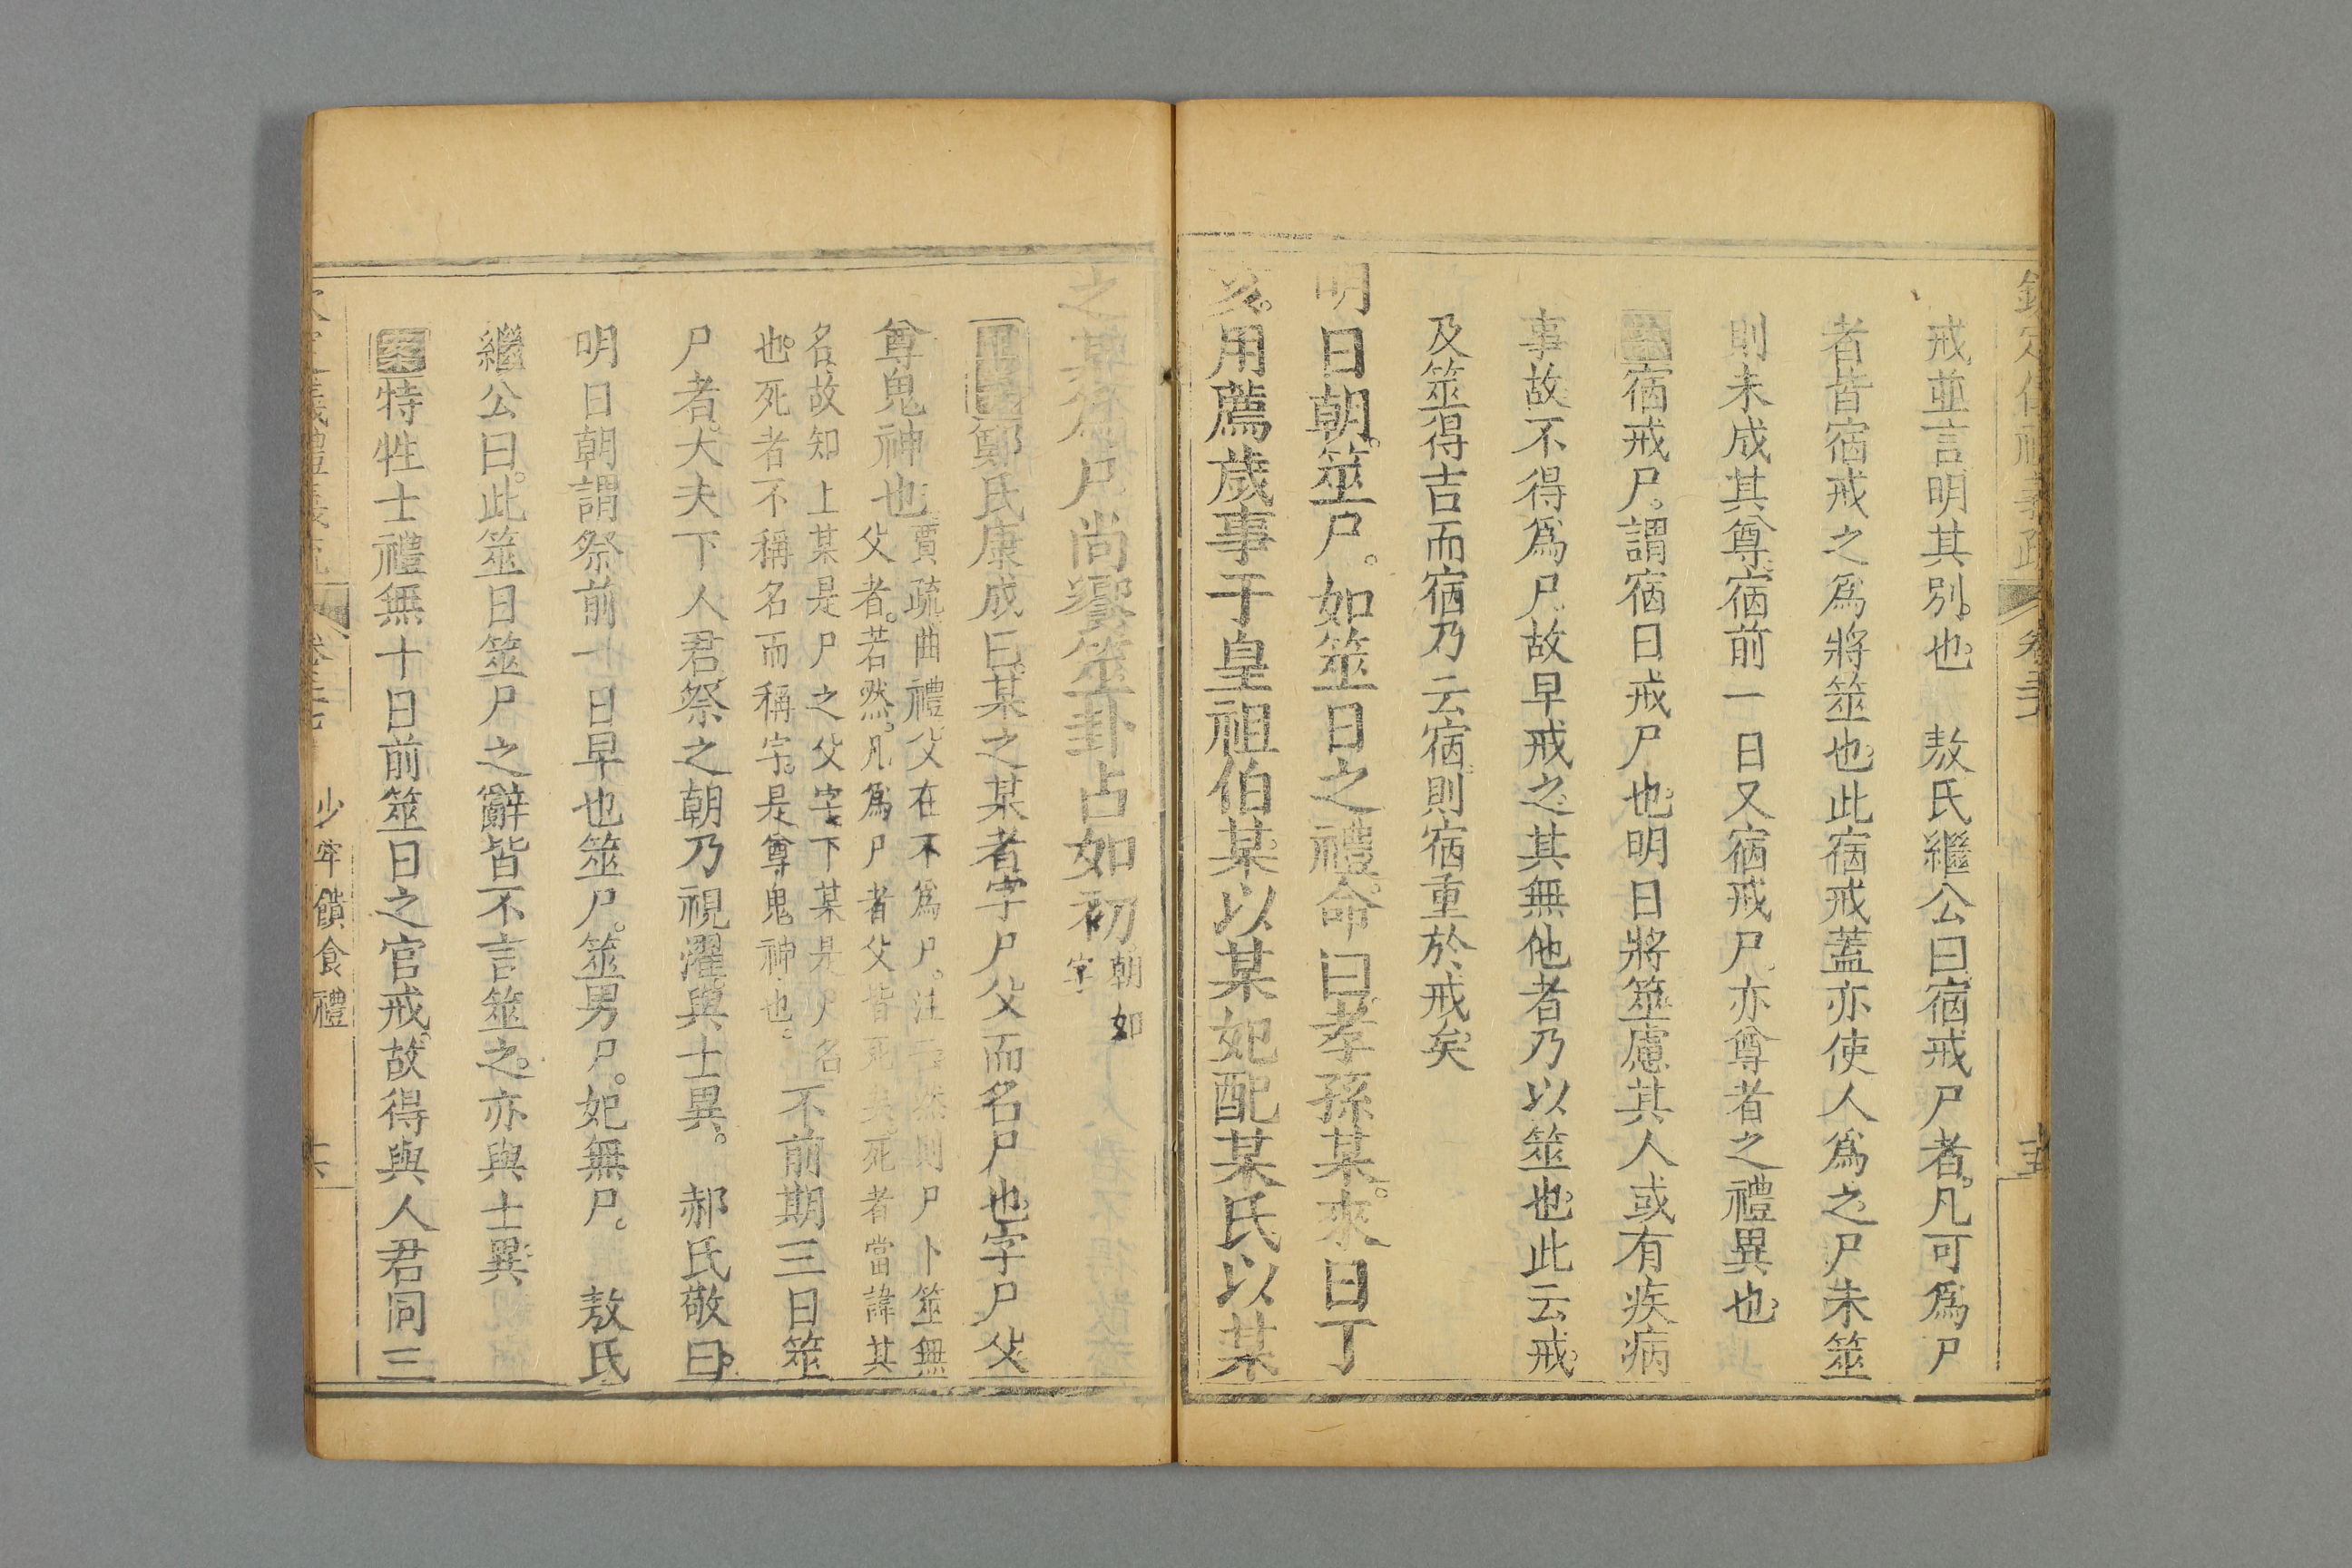 戒並言明其別也　敖氏繼公曰宿戒尸者凡可爲尸
者皆宿戒之爲將筮也此宿戒蓋亦使人爲之尸未筮
則未成其尊宿前一日又宿戒尸亦尊者之禮異也
案宿戒尸謂宿日戒尸也明日將筮慮其人或有疾病
事故不得爲尸故早戒之其無他者乃以筮也此云戒
及筮得吉而宿乃云宿則宿重於戒矣
明日朝筮尸如筮日之禮命曰孝孫某來日丁
亥用薦歲事于皇祖伯某以某妃配某氏以某
之某爲尸尚饗筮卦占如初朝如
字
鄭氏康成曰某之某者字尸父而名尸也字尸父
尊鬼神也
賈疏曲禮父在不爲尸注云然則尸卜筮無
父者若然凡爲尸者父皆死矣死者當諱其
名故知上某是尸之父字下某是尸名
也死者不稱名而稱字是尊鬼神也
不前期三日筮
尸者大夫下人君祭之朝乃視濯與士異　郝氏敬曰
明日朝謂祭前一日早也筮尸筮男尸妃無尸　敖氏
繼公曰此筮日筮尸之辭皆不言筮之亦與士異
案特牲士禮無十日前筮日之官戒故得與人君同三
少牢饋食禮